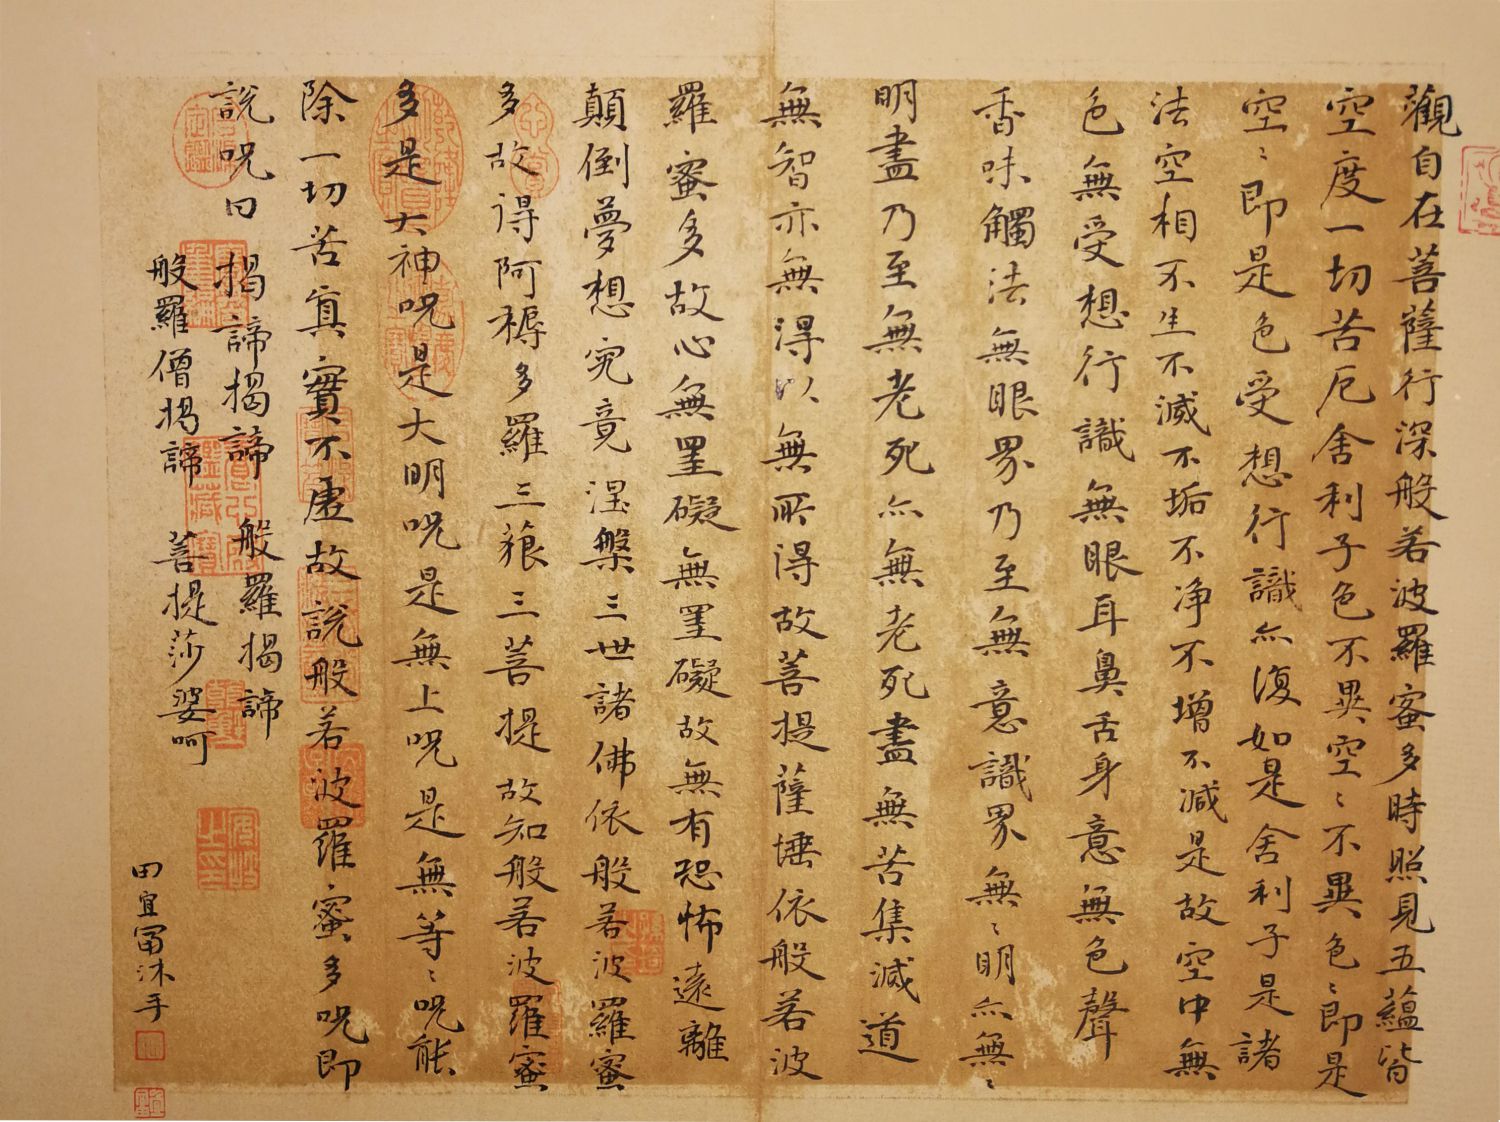 觀自在菩薩行深般若波羅蜜多時照見五蘊皆
空度一切苦厄舍利子色不異空〻不異色〻即是
空〻即是色受想行識亦復如是舍利子是諸
法空相不生不滅不垢不净不增不減是故空中無
色無受想行識無眼耳鼻舌身意無色聲
香味觸法無眼界乃至無意識界無〻明亦無〻
明盡乃至無老死亦無老死盡無苦集滅道
無智亦無得以無所得故菩提薩埵依般若波
羅蜜多故心無罣礙無罣礙故無有恐怖遠離
顛倒夢想究竟涅槃三世諸佛依般若波羅蜜
多故得阿耨多羅三藐三菩提故知般若波羅蜜
多是大神呪是大明呪是無上呪是無等〻呪能
除一切苦真實不虛故說般若波羅蜜多呪即
說呪曰 揭諦揭諦 般羅揭諦
般羅僧揭諦 菩提莎婆呵
田宜 沐手